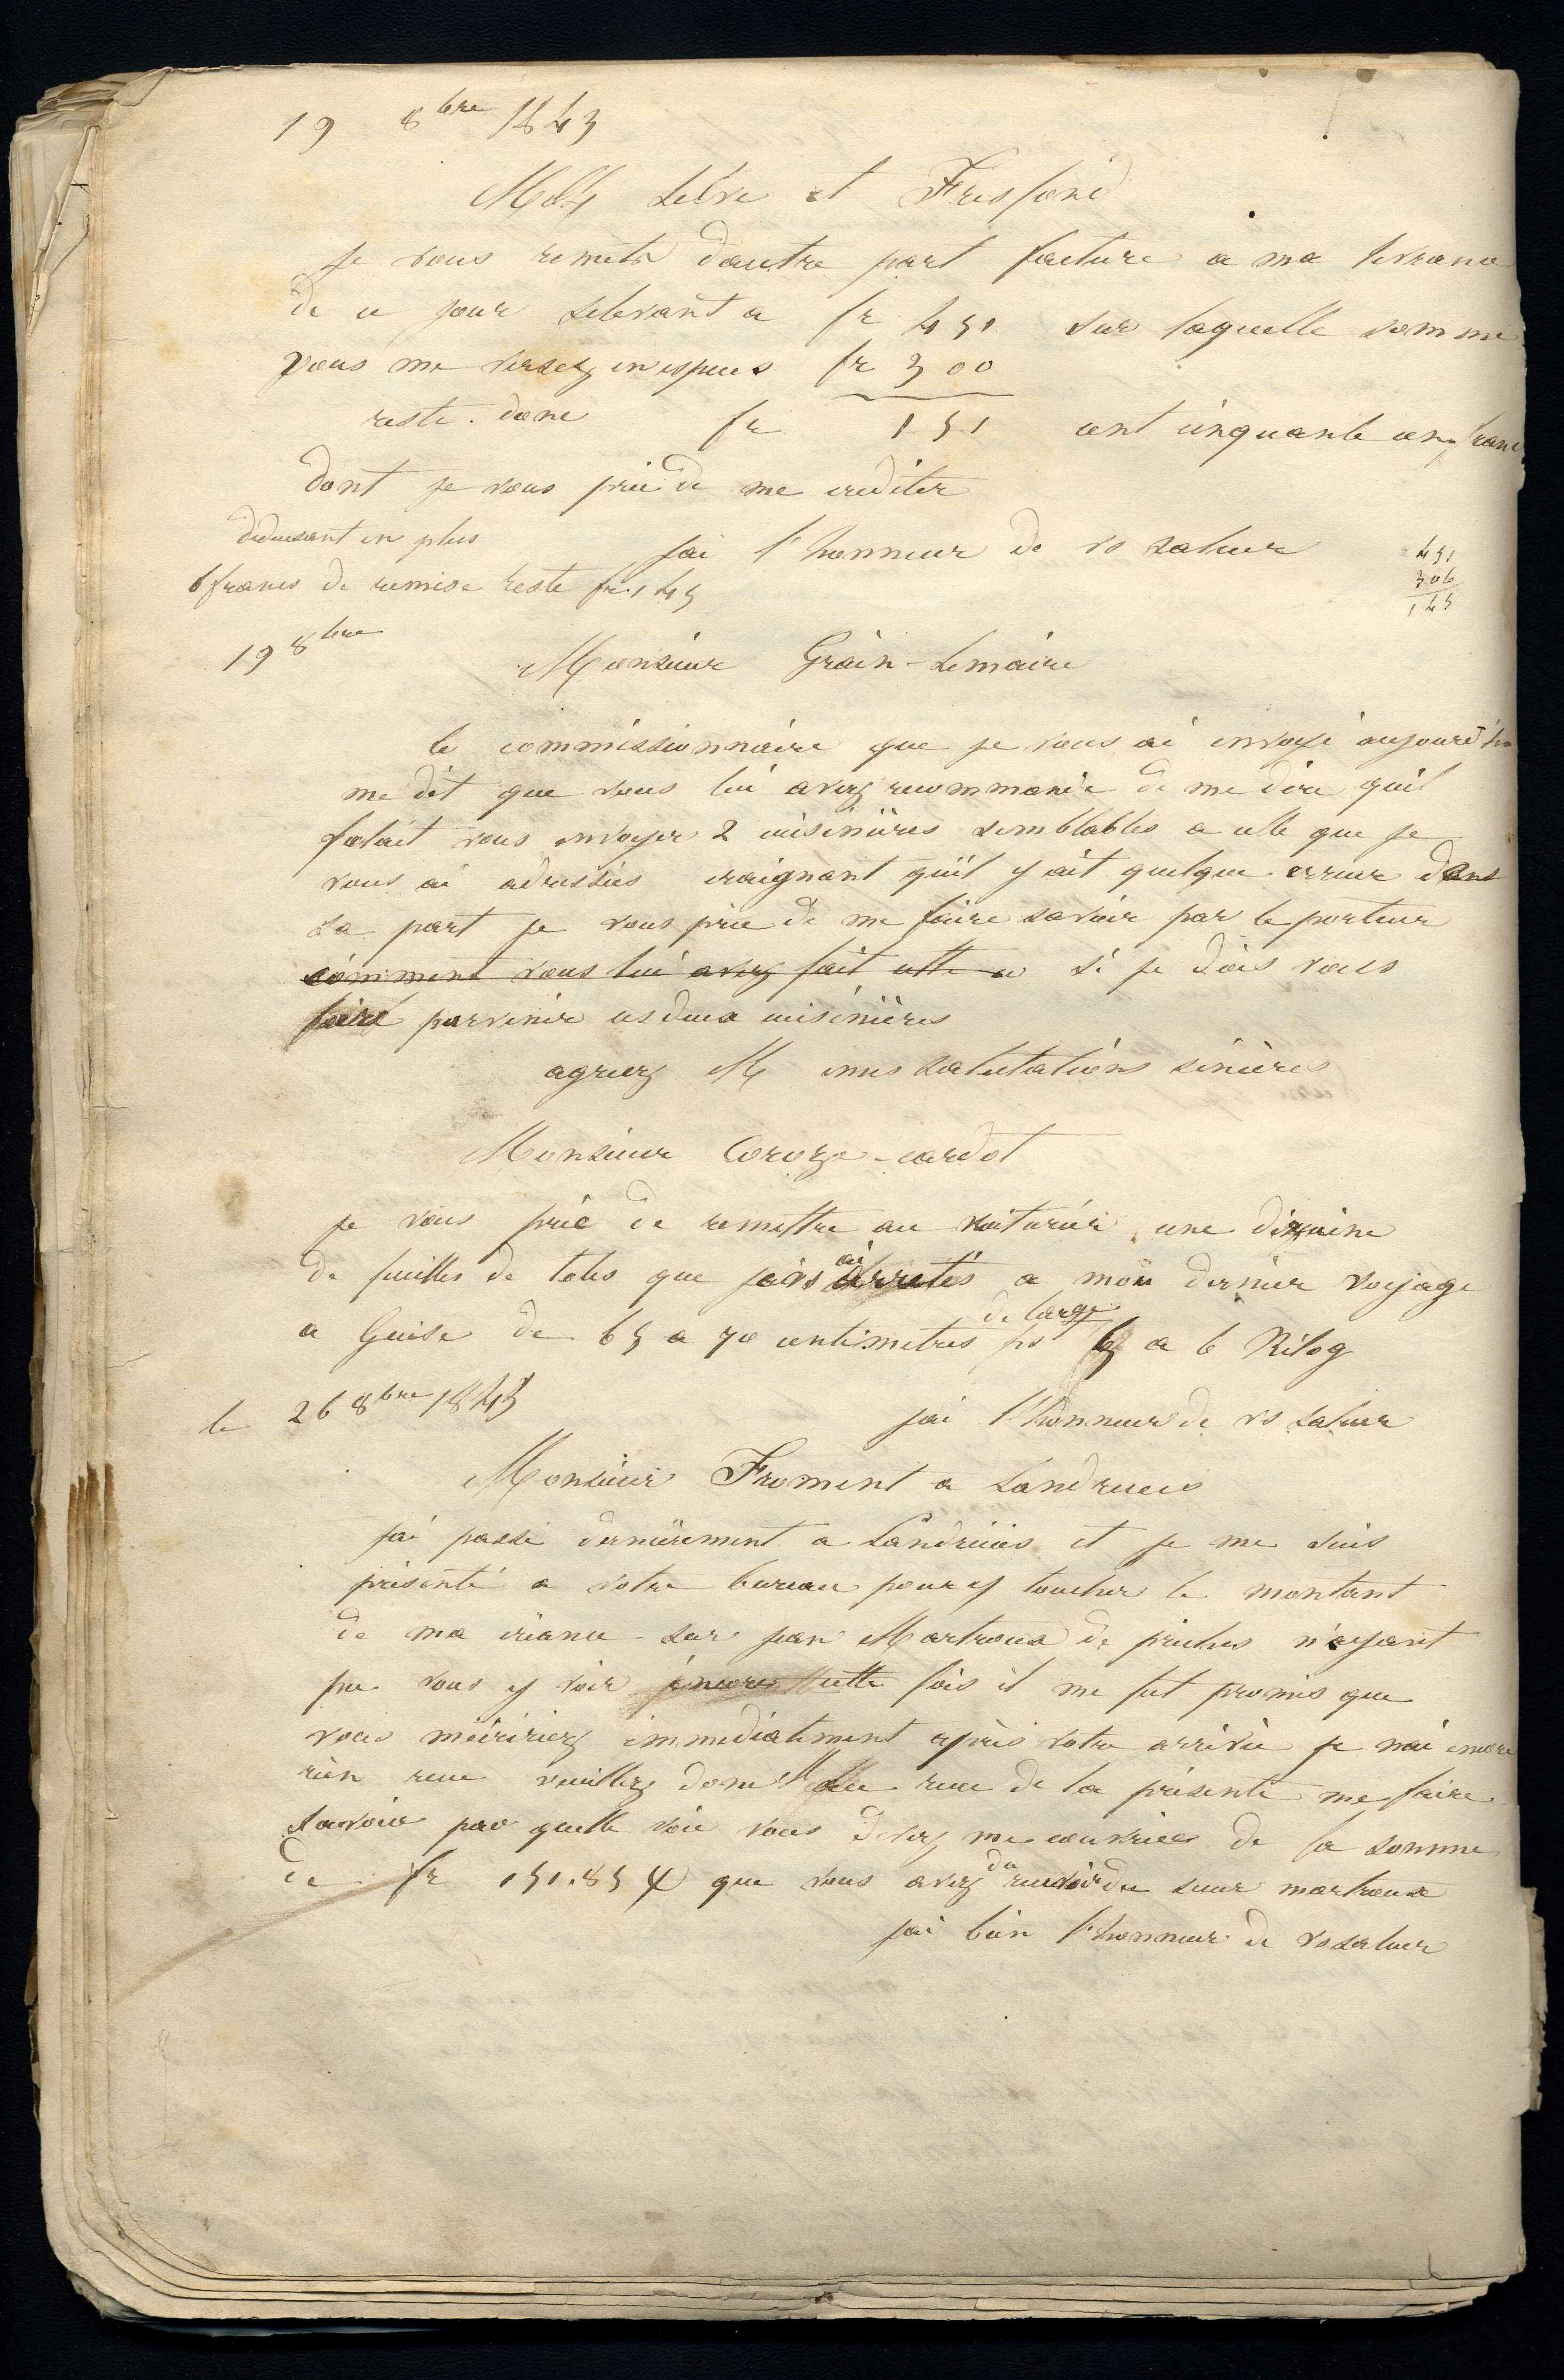 19 8bre 1843
et Fresfond
je vous remets dautre part facture a ma livrance
de ce jour selevant a fr 451 sur laquelle somme
vous me versez en especes fr 300
reste donc fr 151 cent cinquante un franc
dont je vous prie de me crediter
deduisant en plus jai l'honneur de vs saluer 451
6 francs de remise reste fr. 145 306
145
19 8bre Monsieur Grain-Lemaire
le commissionnaire que je vous ai envoyé aujourd'hu
me dit que vous lui avez recommandé de me dire quil
falait vous envoyer 2 cuisinières semblables a celle que je
vous ai adressées craignant quil y ait quelque erreur dans
sa part je vous prie de me faire savoir par le porteur
comment vous lui avez fait cette si je dois vous
faire parvenir ces deux cuisinières
agreez M mes salutations sincères
Monsieur Coroze-cardot
je vous prie de remettre au voiturier une dizaine
de feuilles de toles que jai arretés a mon dernier voyage
de large
a Guise de 65 a 70 centimetres ps 5 a 6 Kilog
le 26 8bre 1843 jai l'honneur de vs saluer
Monsieur Froment a Landrecies
jai passé dernièrement a Landrecies et je me suis
présenté a votre bureau pour y toucher le montant
de ma créance sur jean Martroux de priches n'ayant
pu vous y voir encore cette fois il me fut promis que
vous mécririez immediatement après votre arrivée je nai encore
rien recu veuillez donc recu de la présente me faire
savoir par quelle voie vous me couvrir de la somme
du
de fr 151.85 que vous avez recevoir du sieur martroux
jai bien l'honneur de vs saluer